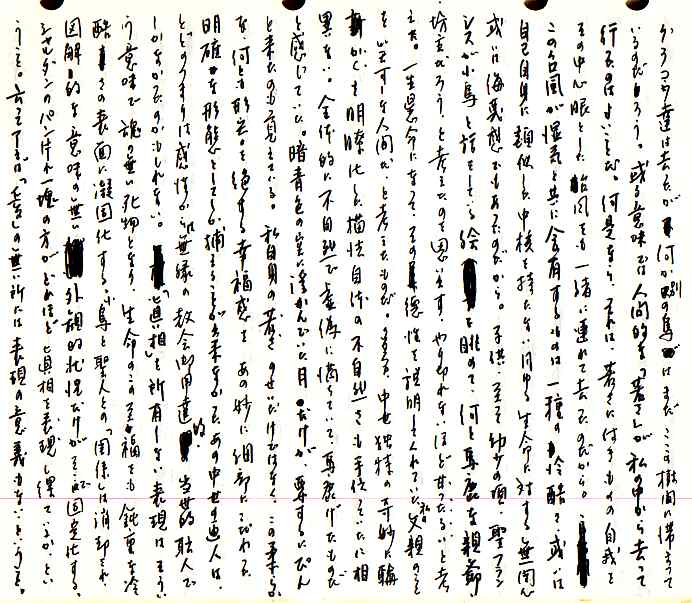 かつコウ達は去ったが何か別の鳥はまだこの樹間に棲まって
いるのだろう。或る意味では人間的な「若さ」が私の中から去って
行くのはよいことだ。何是なら、それは、若さにはきものの自我を
その中心眼とした台風をも一緒に連れて去るのだから。
この台風が湿気と共に含有するものは一種の冷酷さ或いは
自己自身に類似した中核を持たないほゆる生命に対する無関心
或いは侮蔑感でもあるのだから。子供、至る幼少の頃、聖フラン
シスが小鳥と話をしている絵を眺めて、何と馬鹿な親爺
坊主だろう、と考えたのを思い出す。やり切れないほど甘ったるいと考
えた。一生懸命になって、その徳性を説明してくれていた私の父親のこと
をいこじな人間だ、と考えたものだ。中世独特の奇妙に輪
かくも明瞭化した描法自体の不自然さも手伝っていたに相
異ない。全体的に不自然で虚偽に満ちていて馬鹿げたものだ
と感じていた。暗青色の空に浮かんでいた月だけが、尊するにぴん
と来たのも覚えている。私自身の若さのせいだけではなく、この柔らか
な、何とも形容を絶する幸福感を、あの妙に細部にこだわった
明確な形態としてしか捕えることが出来なかったあの中世の画人は、
とどのつまりは感性からは無縁の教会御用達的の当世的職人で
しかなかったのかもしれない。「真相」を所有しない表現はそうい
う意味で魂の無い死物となり、生命のこの至福をも鈍重な冷
酷さの表面に凝固化する。小鳥と聖人との「関係」は消却され
図解的な意味の無い外観的状況だけがそこに固定化する。
シャルダンのパン片れ一塊の方がどれほど真相を表現し得ているか、とい
うこと。云えるなら「愛」の無い所には表現の意義もないという事。